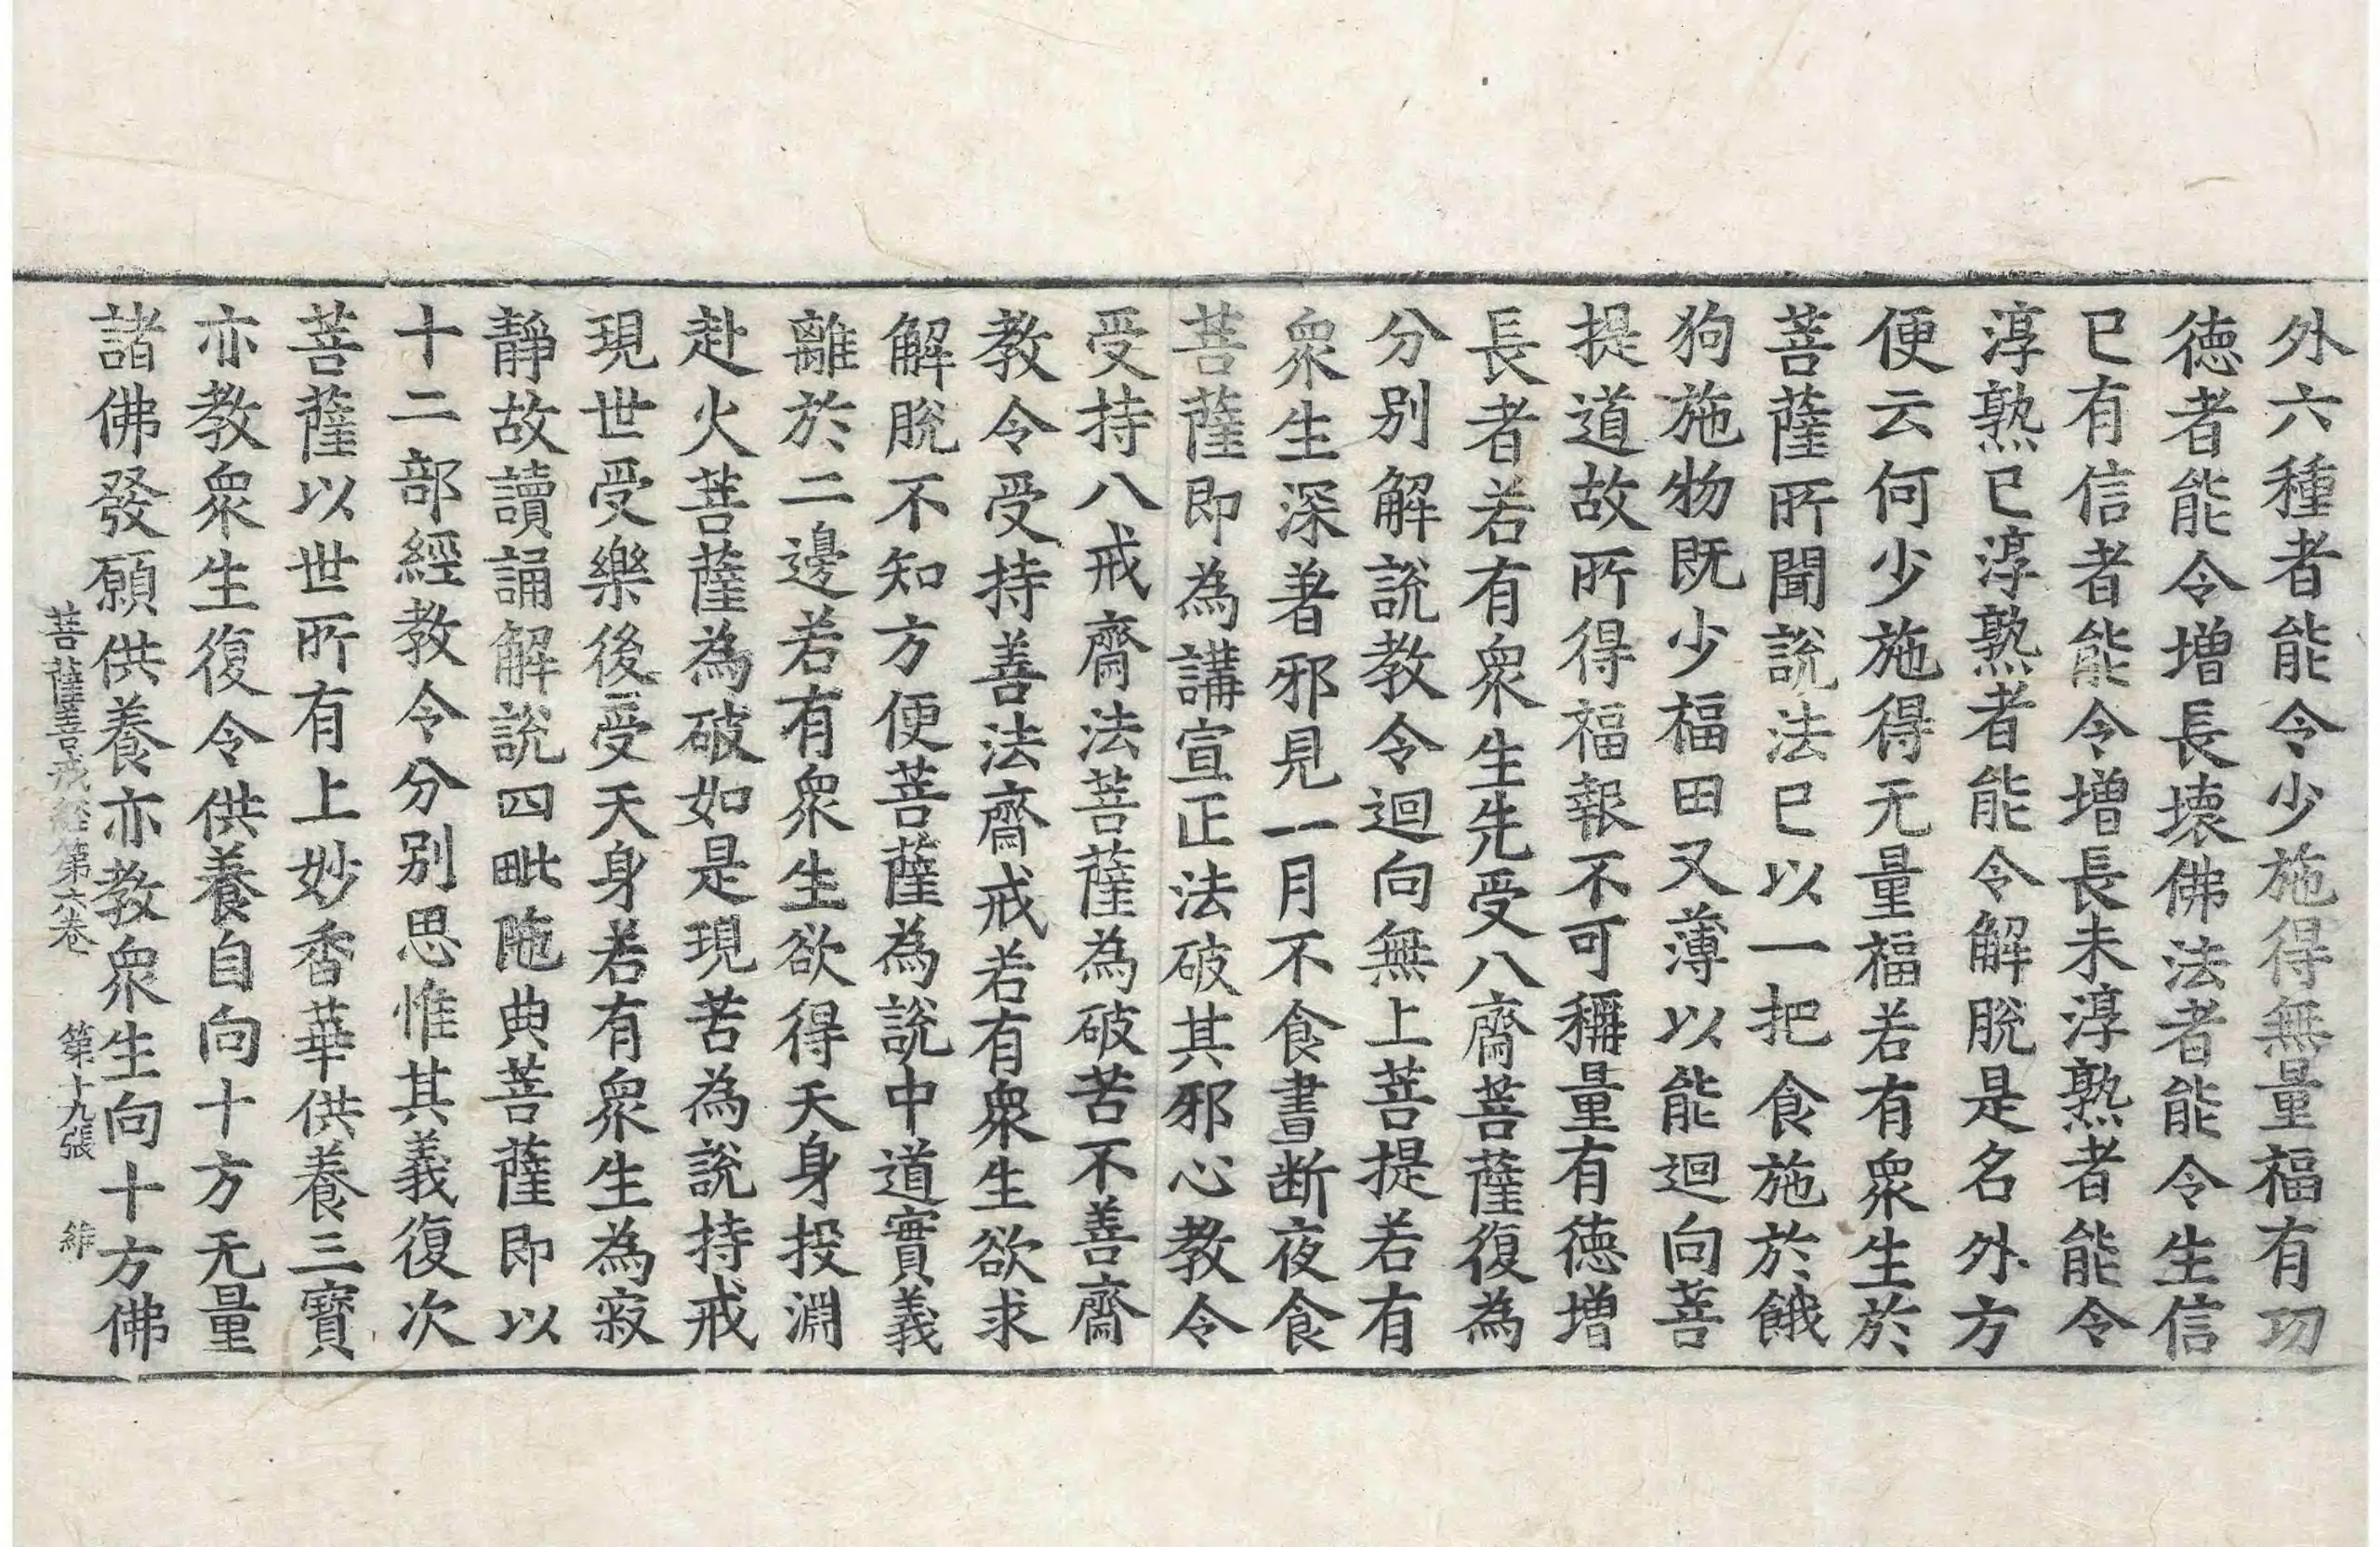 外六種者能令少施得無量福有功
德者能令增長壞佛法者能令生信
已有信者能令增長未淳熟者能令
淳熟已淳熟者能令解脫是名外方
便云何少施得无量福若有衆生於
菩薩所聞說法已以一把食施於餓
狗施物既少福田又薄以能迴向菩
提道故所得福報不可稱量有德增
長者若有衆生先受八齋菩薩復為
分別解說教令迴向無上菩提若有
衆生深著邪見一月不食晝断夜食
菩薩即為講宣正法破其邪心教令
受持八戒齋法菩薩為破苦不善齋
教令受持善法齋戒若有衆生欲求
解脫不知方便菩薩為說中道實義
離於二邊若有衆生欲得天身投淵
赴火菩薩為破如是現苦為說持戒
現世受樂後受天身若有衆生為寂
靜故讀誦解說四毗陁典菩薩即以
十二部經教令分別思惟其義復次
菩薩以世所有上妙香華供養三寶
亦教衆生復令供養自向十方无量
諸佛發願供養亦教衆生向十方佛
菩薩善戒經第六卷 第十九張 維